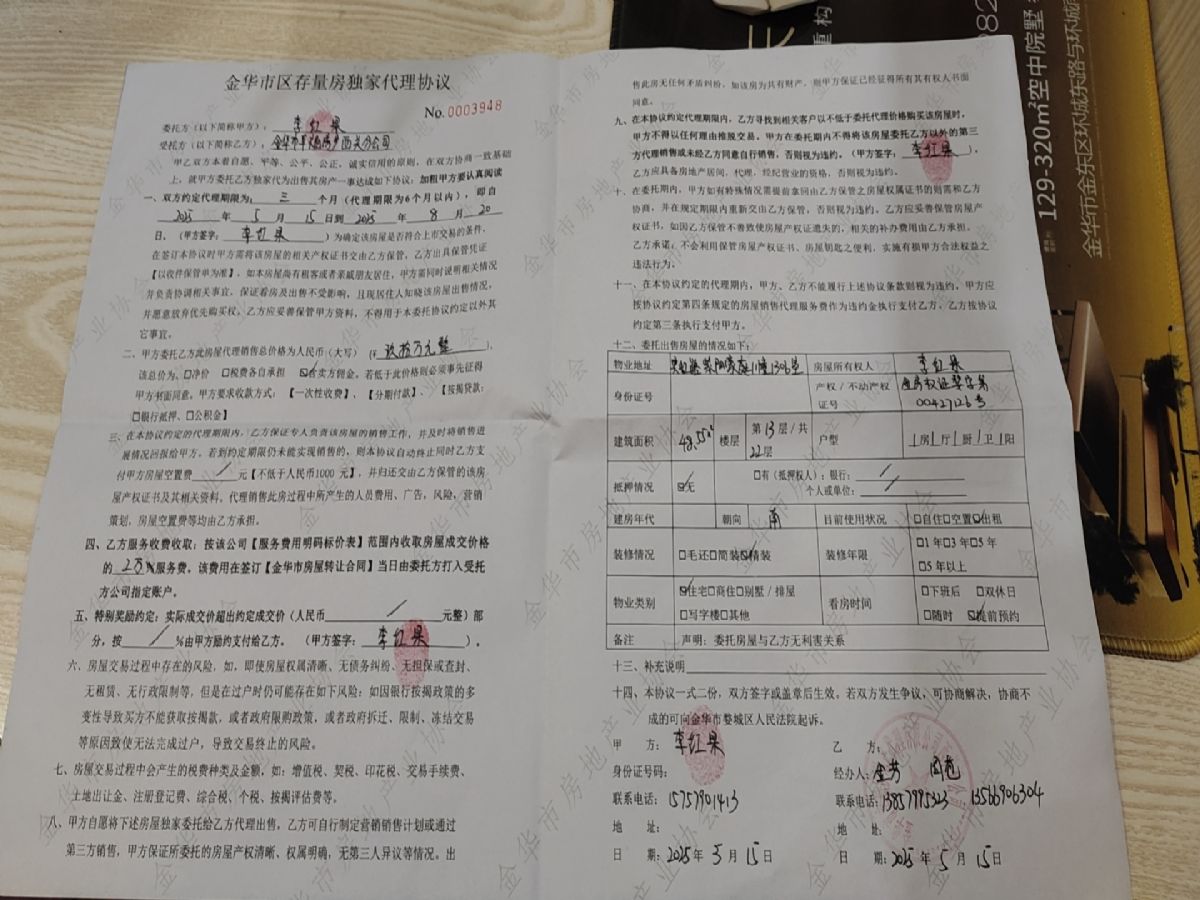 金华市区存量房独家代理协议
No.0003948
委托方（以下简称甲方）：李红果
受托方（以下简称乙方）：
甲乙双方本着自愿、平等、公平、公正、诚实信用的原则，在双方协商一致基础
上，就甲方委托乙方独家代为出售其房产一事达成如下协议：加粗甲方要认真阅读
一、双方约定代理期限为：三 个月（代理期限为6个月以内），即自
2025 年 5 月 15 日到 2025 年 8 月 20
日。（甲方签字：李红果）为确定该房屋是否符合上市交易的条件，
在签订本协议时甲方需将该房屋的相关产权证书交由乙方保管，乙方出具保管凭证
【以收件保管单为准】，如本房屋尚有租客或者亲戚朋友居住，甲方需同时说明相关情况
并负责协调相关事宜，保证看房及出售不受影响，且现居住人知晓该房屋出售情况，
并愿意放弃优先购买权。乙方应妥善保管甲方资料，不得用于本委托协议约定以外其
它事宜。
二、甲方委托乙方此房屋代理销售总价格为人民币（大写）（¥ 玖拾万元整），
该总价为、□净价 □税费各自承担 ☑含卖方佣金。若低于此价格则必须事先征得
甲方书面同意。甲方要求收款方式：【一次性收费】、【分期付款】、【按揭贷款：
□银行抵押、□公积金】
三、在本协议约定的代理期限内，乙方保证专人负责该房屋的销售工作，并及时将销售进
展情况回报给甲方。若到约定期限仍未能实现销售的，则本协议自动终止同时乙方支
付甲方房屋空置费 / 元【不低于人民币1000 元】，并归还交由乙方保管的该房
屋产权证书及其相关资料。代理销售此房过程中所产生的人员费用、广告、风险、营销
策划，房屋空置费等均由乙方承担。
四、乙方服务收费收取：按该公司【服务费用明码标价表】范围内收取房屋成交价格
的 2万 %服务费，该费用在签订【金华市房屋转让合同】当日由委托方打入受托
方公司指定账户。
五、特别奖励约定：实际成交价超出约定成交价（人民币 / 元整）部
分，按 / %由甲方励约支付给乙方。（甲方签字：李红果）。
六、房屋交易过程中存在的风险，如，即使房屋权属清晰、无债务纠纷、无担保或查封、
无租赁、无行政限制等，但是在过户时仍可能存在如下风险：如因银行按揭政策的多
变性导致买方不能获取按揭款，或者政府限购政策，或者政府拆迁、限制、冻结交易
等原因致使无法完成过户，导致交易终止的风险。
七、房屋交易过程中会产生的税费种类及金额，如：增值税、契税、印花税、交易手续费、
土地出让金、注册登记费、综合税、个税、按揭评估费等。
八、甲方自愿将下述房屋独家委托给乙方代理出售，乙方可自行制定营销销售计划或通过
第三方销售，甲方保证所委托的房屋产权清晰、权属明确，无第三人异议等情况。出
售此房无任何矛盾纠纷，如该房为共有财产，则甲方保证已经征得所有其有权人书面
同意。
九、在本协议约定代理期限内，乙方寻找到相关客户以不低于委托代理价格购买该房屋时，
甲方不得以任何理由推脱交易。甲方在委托期内不得将该房屋委托乙方以外的第三
方代理销售或未经乙方同意自行销售，否则视为违约。（甲方签字：李红果）。
乙方应具备房地产居间、代理、经纪营业的资格，否则视为违约。
十、在委托期内，甲方如有特殊情况需提前拿回由乙方保管之房屋权属证书的则需和乙方
协商，并在规定期限内重新交由乙方保管，否则视为违约。乙方应妥善保管房屋产
权证书，如因乙方保管不善致使房屋产权证遗失的，相关的补办费用由乙方承担。
乙方承诺，不会利用保管房屋产权证书、房屋钥匙之便利，实施有损甲方合法权益之
违法行为。
十一、在本协议约定的代理期内，甲方、乙方不能履行上述协议条款则视为违约，甲方应
按协议约定第四条规定的房屋销售代理服务费作为违约金执行支付乙方。乙方按协议
约定第三条执行支付甲方。
十二、委托出售房屋的情况如下：
物业地址 11幢1306室 房屋所有权人 李红果
身份证号 产权 / 不动产权证号 房权证婺字第00427126号
建筑面积 48.55㎡ 楼层 第13层 / 共22层 户型 1房1厅1厨1卫1阳
抵押情况 ☑无 □有（抵押权人）：银行： /
个人或单位： /
建房年代 朝向 南 目前使用状况 □自住□空置☑出租
装修情况 □毛还□简装☑精装 装修年限 □1年□3年□5年
□5年以上
物业类别 ☑住宅□商住□别墅 / 排屋 □写字楼□其他 看房时间 □下班后 □双休日
□随时 ☑提前预约
备注 声明：委托房屋与乙方无利害关系
十三、补充说明
十四、本协议一式二份，双方签字或盖章后生效。若双方发生争议，可协商解决，协商不
成的可向金华市婺城区人民法院起诉。
甲 方：李红果
身份证号码：
联系电话：15757901413
地 址：
日 期：2025 年 5 月 15 日
乙 方：
经办人：金芳
联系电话：13857995323 13566906304
地 址：
日 期：2025 年 5 月 15 日
129-320㎡空中院墅
金华市金东区环城东路与环城南